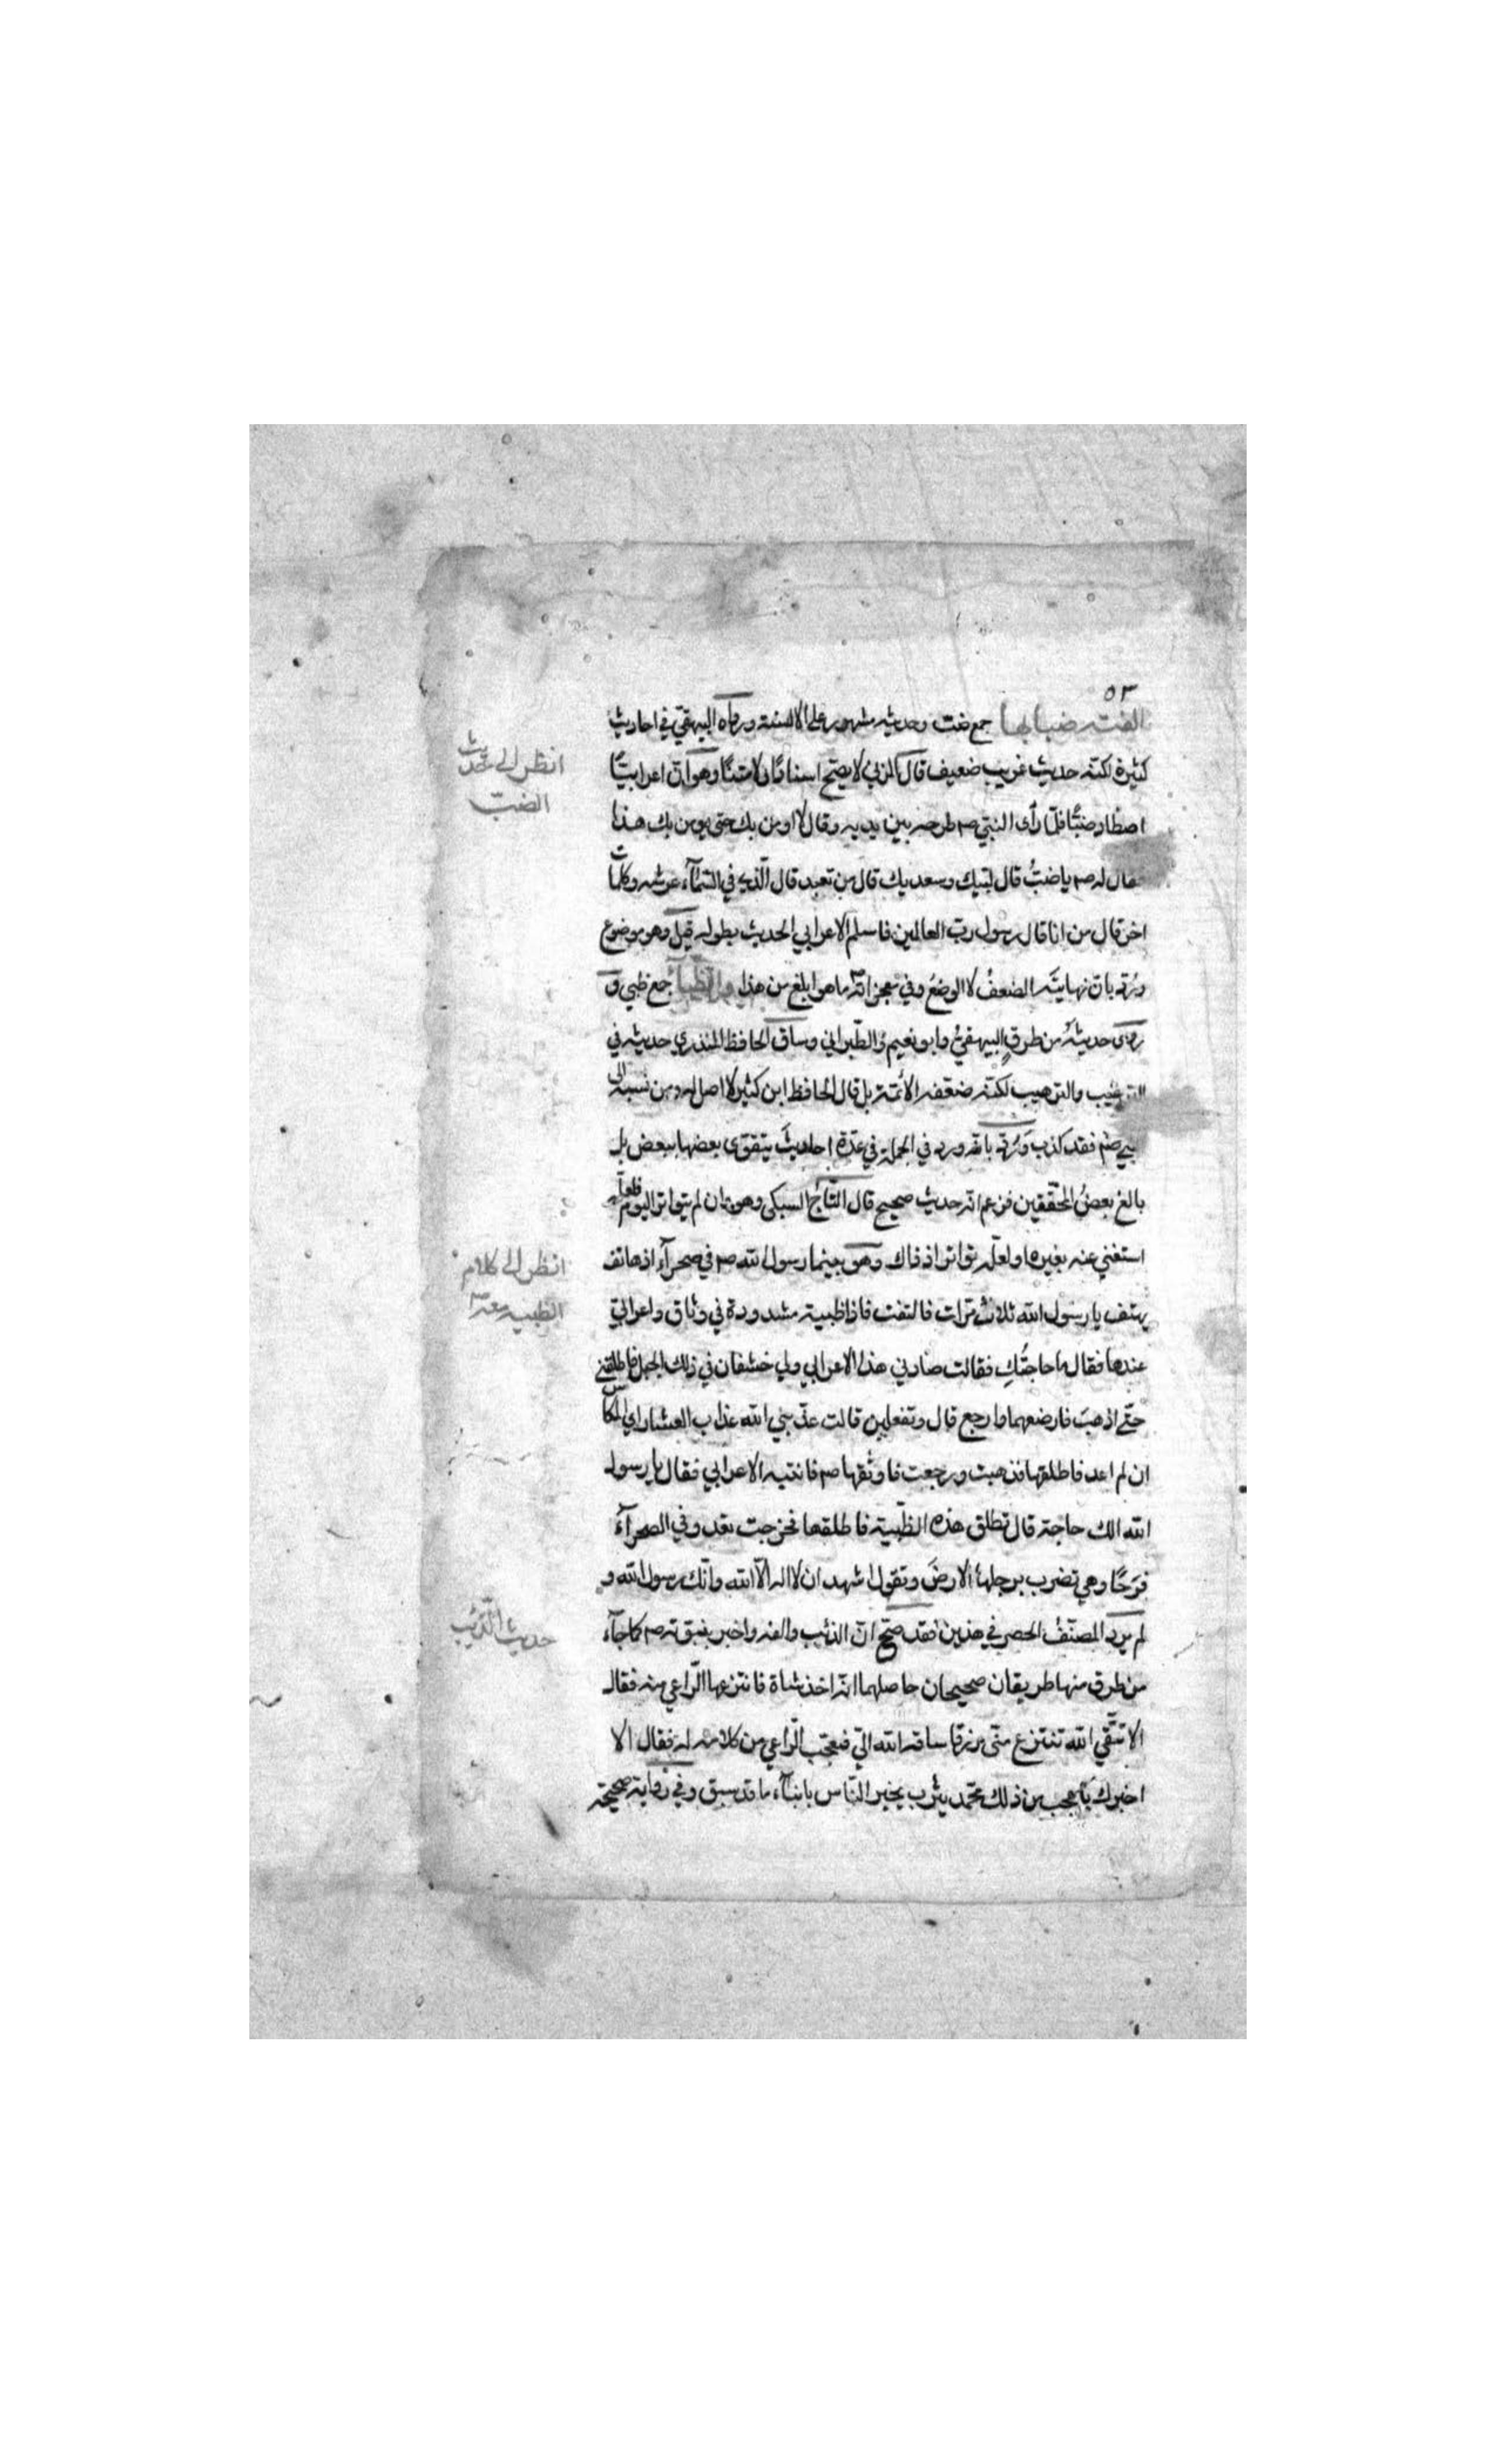 ٥٣
الفت ضبابها جمع ضب وحديثه مشهور على الالسنة ورواه البيهقي في احاديث
كثيرة لكنه حديث غريب ضعيف قال المزني لا يصح اسنادًا ولا متنًا وهو ان اعرابيًّا
اصطاد ضبًّا فلما رأى النبي صم طرحه بين يديه وقال لا اومن بك حتى يومن بك هذا
فقال له صم يا ضبُّ قال لبيك وسعديك قال من تعبد قال الذي في السمآء عرشه وكلمات
اخر قال من انا قال رسول رب العالمين فاسلم الاعرابي الحديث بطوله قيل وهو موضوع
ورُدّ بان نهايته الضعفُ لا الوضعُ وفي معجزاته ما هو ابلغ من هذا والظبآء جمع ظبي و
روى حديثه من طرقٍ البيهقيُّ وابو نعيم والطبراني وساق الحافظ المنذري حديثه في
الترغيب والترهيب لكنه ضعفه الائمة بل قال الحافظ ابن كثير لا اصل له ومن نسبه الى
النبي صم فقد كذب ورُدّ بانه ورد في الجملة في عدّة احاديثَ يتقوى بعضها ببعض بل
بالغ بعضُ المحققين فزعم انه حديث صحيح قال التاج السبكي وهو وان لم يتواتر اليوم فلعله
استغني عنه بغيره او لعله تواتر اذ ذاك وهو بينما رسول الله صم في صحرآء اذ هاتف
يهتف يا رسول الله ثلاث مرات فالتفت فاذا ظبية مشدودة في وثاق واعرابي
عندها فقال ما حاجتُكِ فقالت صادني هذا الاعرابي ولي خشفان في ذلك الجبل فاطلقني
حتى اذهب فارضعهما وارجع قال وتفعلين قالت عذبني الله عذاب العشار اي المكاس
ان لم اعد فاطلقها فذهبت ورجعت فاوثقها صم فانتبه الاعرابي فقال يا رسول
الله الك حاجة قال تطلق هذه الظبية فاطلقها فخرجت تعدو في الصحرآء
فرَحًا وهي تضرب برجلها الارضَ وتقول اشهد ان لا اله الا الله وانك رسول الله و
لم يرد المصنّفُ الحصر في هذين فقد صح ان الذئب والفه واخبر بنبوّته صم كما جآء
من طرق منها طريقان صحيحان حاصلهما انه اخذ شاة فانتزعها الراعي منه فقال
الا تتقي الله تنتزع مني رزقا ساقه الله الي فتعجب الراعي من كلامه له فقال الا
اخبرك باعجب من ذلك محمد بيثرب يخبر الناس بانبآء ما قد سبق وفي رواية صحيحة
انظر الى حديث
الضبّ
انظر الى كلام
الظبيه معه
حديث الذئب